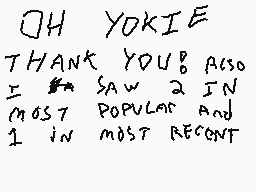 OH YOKIE
THANK YOU! ALSO
I SAW 2 IN
MOST POPULAR And
1 in MOST RECENT